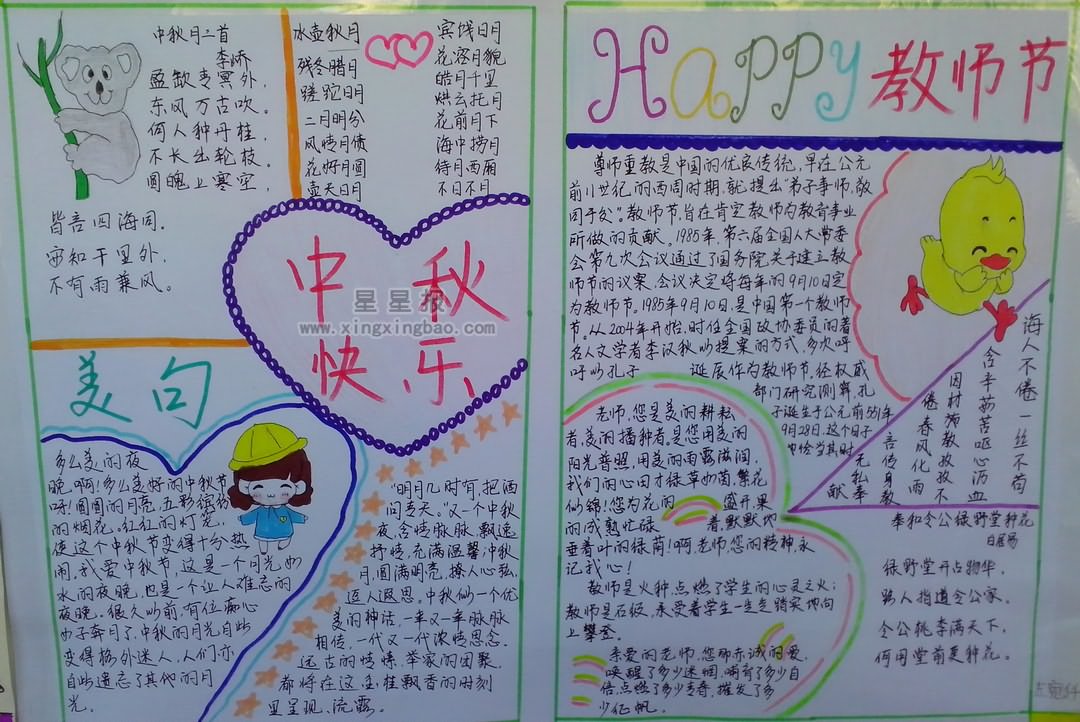 中秋月二首
李峤
盈缺青冥外，
东风万古吹。
何人种丹桂，
不长出轮枝。
圆魄上寒空，
皆言四海同。
安知千里外，
不有雨兼风。
水壶秋月
残冬腊月
蹉跎日月
二月明分
风情月债
花好月圆
壶天日月
宾饯日月
花容月貌
皓月千里
烘云托月
花前月下
海中捞月
待月西厢
不日不月
中秋
快乐
星星报
www.xingxingbao.com
美句
多么美的夜
晚啊!多么美好的中秋节
呀!圆圆的月亮,五彩缤纷
的烟花,红红的灯笼,
使这个中秋节变得十分热
闹。我爱中秋节,这是一个月光如
水的夜晚,也是一个让人难忘的
夜晚。很久以前,有位痴心
女子奔月了,中秋的月光自此
变得格外迷人,人们亦
自此遗忘了其他的月
光。
"明月几时有,把酒
问青天。"又一个中秋
夜,含情脉脉,飘逸
抒情,充满温馨;中秋
月,圆满明亮,撩人心弦,
逗人遐思。中秋似一个优
美的神话,一年又一年脉脉
相传,一代又一代浓情思念。
远古的情怀,举家的团聚,
都将在这金桂飘香的时刻
里呈现、流露。
HAPPY 教师节
尊师重教是中国的优良传统,早在公元
前11世纪的西周时期,就提出"弟子事师,敬
同于父"。教师节,旨在肯定教师为教育事业
所做的贡献。1985年,第六届全国人大常委
会第九次会议通过了国务院关于建立教
师节的议案,会议决定将每年的9月10日定
为教师节。1985年9月10日,是中国第一个教师
节。从2004年开始,时任全国政协委员的著
名人文学者李汉秋以提案的方式,多次呼
吁以孔子 诞辰作为教师节,经权威
部门研究测算,孔
子诞生于公元前551年
9月28日,这个日子
也恰当其时
老师,您是美的耕耘
者,美的播种者,是您用美的
阳光普照,用美的雨露滋润,
我们的心田才绿草如茵,繁花
似锦!您为花的 盛开,果
的成熟忙碌 着,默默地
垂着叶的绿荫!啊,老师,您的精神,永
记我心!
教师是火种,点燃了学生的心灵之火;
教师是石级,承受着学生一步步踏实地向
上攀登。
亲爱的老师,您那赤诚的爱,
唤醒了多少迷惘,哺育了多少自
信,点燃了多少青春,摧发了多
少征帆。
海人不倦 一丝不苟
含辛茹苦 呕心沥血
因材施教 孜孜不
倦 春风化雨
言传身教
无私奉
献
奉和令公绿野堂种花
白居易
绿野堂开占物华,
路人指道令公家。
令公桃李满天下,
何用堂前更种花。